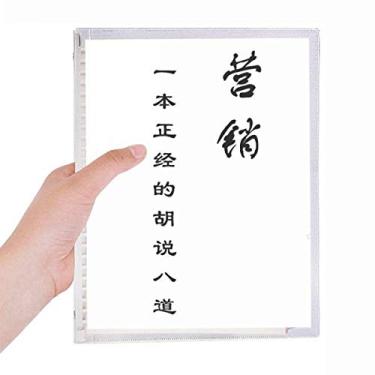 营销
一本正经的胡说八道